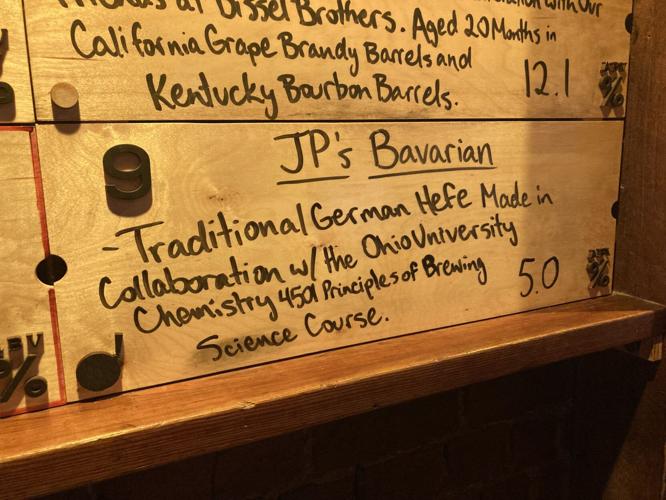 at Bissel Brothers. Aged 20 Months in
California Grape Brandy Barrels and
Kentucky Bourbon Barrels.
12.1
%
9
JP's Bavarian
-Traditional German Hefe Made in
Collaboration w/ the Ohio University
Chemistry 4501 Principles of Brewing
Science Course.
5.0
%
ABV
%